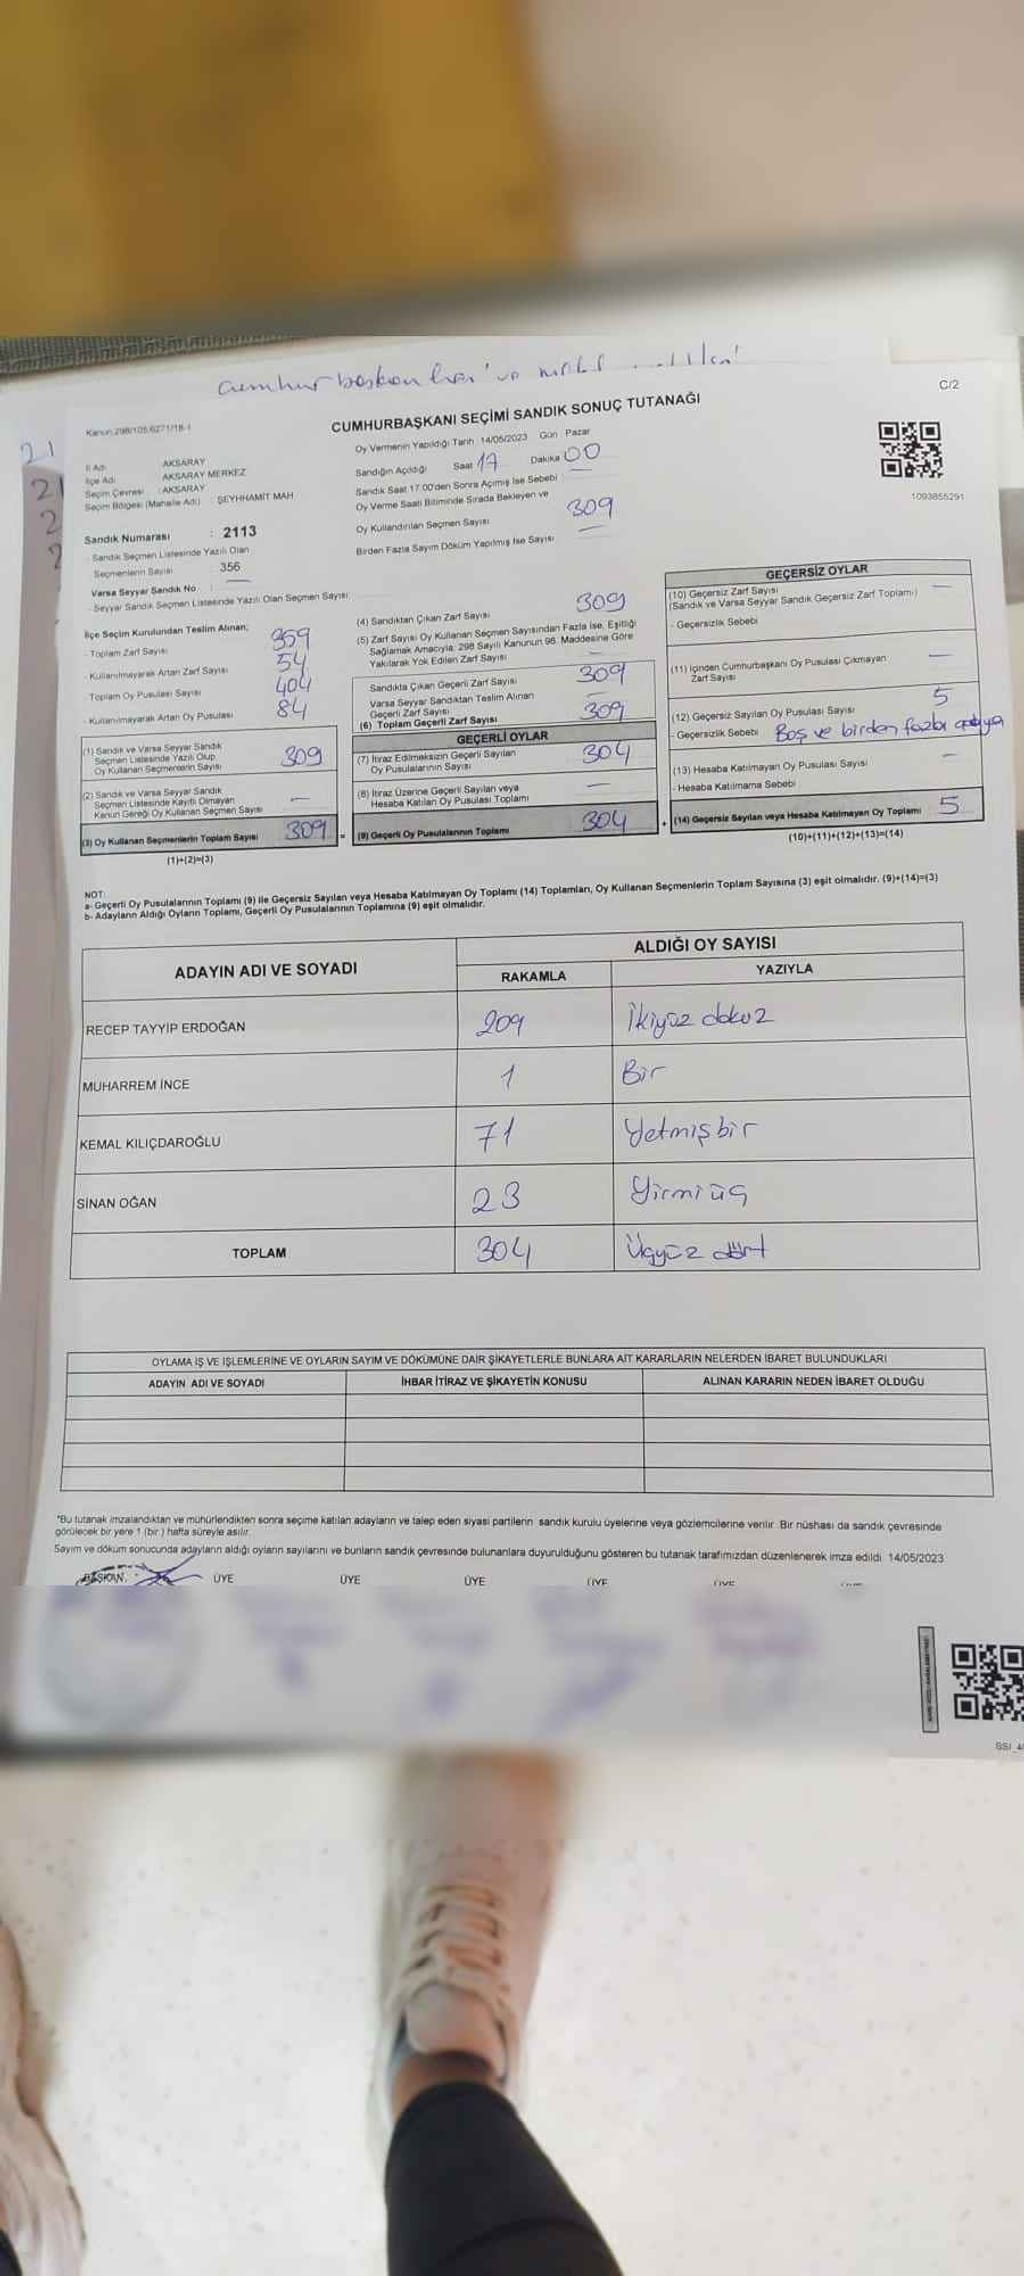 C/2
Kanun:298/105,6271/18-I
CUMHURBAŞKANI SEÇİMİ SANDIK SONUÇ TUTANAĞI
İl Adı : AKSARAY
İlçe Adı : AKSARAY MERKEZ
Seçim Çevresi : AKSARAY
Seçim Bölgesi (Mahalle Adı) : ŞEYHHAMİT MAH
Sandık Numarası : 2113
Sandık Seçmen Listesinde Yazılı Olan
Seçmenlerin Sayısı : 356
Varsa Seyyar Sandık No : —
Seyyar Sandık Seçmen Listesinde Yazılı Olan Seçmen Sayısı:
Oy Vermenin Yapıldığı Tarih 14/05/2023 Gün Pazar
Sandığın Açıldığı Saat 17 Dakika 00
Sandık Saat 17:00'den Sonra Açılmış İse Sebebi —
Oy Verme Saati Bitiminde Sırada Bekleyen ve
Oy Kullandırılan Seçmen Sayısı 309
Birden Fazla Sayım Döküm Yapılmış İse Sayısı —
1093855291
İlçe Seçim Kurulundan Teslim Alınan;
- Toplam Zarf Sayısı 359
- Kullanılmayarak Artan Zarf Sayısı 54
- Toplam Oy Pusulası Sayısı 404
- Kullanılmayarak Artan Oy Pusulası 84
(1) Sandık ve Varsa Seyyar Sandık
Seçmen Listesinde Yazılı Olup
Oy Kullanan Seçmenlerin Sayısı 309
(2) Sandık ve Varsa Seyyar Sandık
Seçmen Listesinde Kayıtlı Olmayan
Kanun Gereği Oy Kullanan Seçmen Sayısı —
(3) Oy Kullanan Seçmenlerin Toplam Sayısı 309 =
(1)+(2)=(3)
(4) Sandıktan Çıkan Zarf Sayısı 309
(5) Zarf Sayısı Oy Kullanan Seçmen Sayısından Fazla İse, Eşitliği
Sağlamak Amacıyla, 298 Sayılı Kanunun 98. Maddesine Göre
Yakılarak Yok Edilen Zarf Sayısı —
Sandıkta Çıkan Geçerli Zarf Sayısı 309
Varsa Seyyar Sandıktan Teslim Alınan
Geçerli Zarf Sayısı —
(6) Toplam Geçerli Zarf Sayısı 309
GEÇERLİ OYLAR
(7) İtiraz Edilmeksizin Geçerli Sayılan
Oy Pusulalarının Sayısı 304
(8) İtiraz Üzerine Geçerli Sayılan veya
Hesaba Katılan Oy Pusulası Toplamı —
(9) Geçerli Oy Pusulalarının Toplamı 304 +
GEÇERSİZ OYLAR
(10) Geçersiz Zarf Sayısı —
(Sandık ve Varsa Seyyar Sandık Geçersiz Zarf Toplamı)
- Geçersizlik Sebebi
(11) İçinden Cumhurbaşkanı Oy Pusulası Çıkmayan
Zarf Sayısı —
(12) Geçersiz Sayılan Oy Pusulası Sayısı 5
- Geçersizlik Sebebi Boş ve birden fazla
(13) Hesaba Katılmayan Oy Pusulası Sayısı —
- Hesaba Katılmama Sebebi
(14) Geçersiz Sayılan veya Hesaba Katılmayan Oy Toplamı 5
(10)+(11)+(12)+(13)=(14)
NOT:
a- Geçerli Oy Pusulalarının Toplamı (9) ile Geçersiz Sayılan veya Hesaba Katılmayan Oy Toplamı (14) Toplamları, Oy Kullanan Seçmenlerin Toplam Sayısına (3) eşit olmalıdır. (9)+(14)=(3)
b- Adayların Aldığı Oyların Toplamı, Geçerli Oy Pusulalarının Toplamına (9) eşit olmalıdır.
ADAYIN ADI VE SOYADI ALDIĞI OY SAYISI
RAKAMLA YAZIYLA
RECEP TAYYİP ERDOĞAN 209 İkiyüz dokuz
MUHARREM İNCE 1 Bir
KEMAL KILIÇDAROĞLU 71 Yetmişbir
SİNAN OĞAN 23 Yirmiüç
TOPLAM 304 Üçyüz dört
OYLAMA İŞ VE İŞLEMLERİNE VE OYLARIN SAYIM VE DÖKÜMÜNE DAİR ŞİKAYETLERLE BUNLARA AİT KARARLARIN NELERDEN İBARET BULUNDUKLARI
ADAYIN ADI VE SOYADI İHBAR İTİRAZ VE ŞİKAYETİN KONUSU ALINAN KARARIN NEDEN İBARET OLDUĞU
*Bu tutanak imzalandıktan ve mühürlendikten sonra seçime katılan adayların ve talep eden siyasi partilerin sandık kurulu üyelerine veya gözlemcilerine verilir. Bir nüshası da sandık çevresinde
görülecek bir yere 1 (bir ) hafta süreyle asılır.
Sayım ve döküm sonucunda adayların aldığı oyların sayılarını ve bunların sandık çevresinde bulunanlara duyurulduğunu gösteren bu tutanak tarafımızdan düzenlenerek imza edildi. 14/05/2023
BAŞKAN ÜYE ÜYE ÜYE ÜYE ÜYE